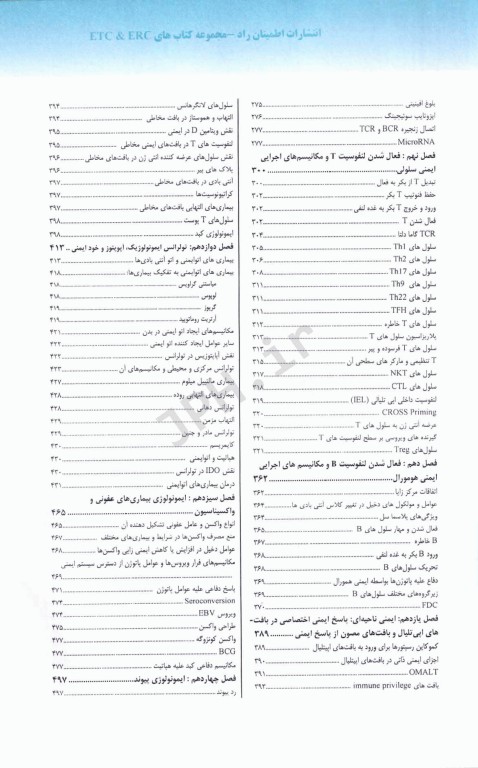 انتشارات اطمینان راد –مجموعه کتاب های ETC & ERC
بلوغ افینیتی ..... ۲۷۵
ایزوتایپ سوئیچینگ ..... ۲۷۶
اتصال زنجیره BCR و TCR ..... ۲۷۷
MicroRNA ..... ۲۷۷
فصل نهم : فعال شدن لنفوسیت T و مکانیسم‌های اجرایی
ایمنی سلولی ..... ۳۰۰
تبدیل T از بکر به فعال ..... ۳۰۰
حفظ فنوتیپ T بکر ..... ۳۰۲
ورود و خروج T بکر به غده لنفی ..... ۳۰۲
فعال شدن T ..... ۳۰۲
TCR گاما دلتا ..... ۳۰۴
سلول های Th1 ..... ۳۰۵
سلول های Th2 ..... ۳۰۶
سلول های Th17 ..... ۳۰۸
سلول های Th9 ..... ۳۱۱
سلول های Th22 ..... ۳۱۱
سلول های TFH ..... ۳۱۱
سلول های T خاطره ..... ۳۱۲
پلاریزاسیون سلول های T ..... ۳۱۳
سلول های T فرسوده و پیر ..... ۳۱۴
T تنظیمی و مارکر های سطحی آن ..... ۳۱۵
سلول های NKT ..... ۳۱۷
سلول های CTL ..... ۳۱۸
لنفوسیت داخلی اپی تلیالی (IEL) ..... ۳۱۹
CROSS Priming ..... ۳۲۰
عرضه آنتی ژن به سلول های T ..... ۳۲۰
گیرنده های ویروسی بر سطح لنفوسیت های T ..... ۳۲۱
سلول‌های Treg ..... ۳۲۱
فصل دهم : فعال شدن لنفوسیت B و مکانیسم های اجرایی
ایمنی هومورال ..... ۳۶۲
اتفاقات مرکز زایا ..... ۳۶۲
عوامل و مولکول های دخیل در تغییر کلاس آنتی بادی ها ..... ۳۶۴
ویژگی‌های پلاسما سل ..... ۳۶۴
فعال شدن و مهار سلول های B ..... ۳۶۵
B خاطره ..... ۳۶۷
ورود B بکر به غده لنفی ..... ۳۶۸
تحریک سلول‌های B ..... ۳۶۸
دفاع علیه پاتوژن‌ها بواسطه ایمنی همورال ..... ۳۶۹
زیرگروه‌های مختلف سلول‌های B ..... ۳۶۹
FDC ..... ۳۷۰
فصل یازدهم: ایمنی ناحیه‌ای: پاسخ ایمنی اختصاصی در بافت-
های اپی‌تلیال و بافت‌های مصون از پاسخ ایمنی ..... ۳۸۹
کموکاین رسپتورها برای ورود به بافت‌های اپیتلیال ..... ۳۸۹
اجزای ایمنی ذاتی در بافت‌های اپیتلیال ..... ۳۹۰
OMALT ..... ۳۹۱
بافت های immune privilege ..... ۳۹۳
سلول‌های لانگرهانس ..... ۳۹۴
التهاب و هموستاز در بافت مخاطی ..... ۳۹۴
نقش ویتامین D در ایمنی ..... ۳۹۵
لنفوسیت های T در بافت‌های ایمنی مخاطی ..... ۳۹۵
نقش سلول‌های عرضه کننده آنتی ژن در بافت‌های مخاطی ..... ۳۹۶
پلاک های پیر ..... ۳۹۶
آنتی بادی در بافت‌های مخاطی ..... ۳۹۷
کراتینوسیت‌ها ..... ۳۹۷
بیماری‌های التهابی بافت‌های مخاطی ..... ۳۹۷
سلول‌های T پوست ..... ۳۹۸
ایمونولوژی کبد ..... ۳۹۸
فصل دوازدهم: تولرانس ایمونولوژیک، اپوپتوز و خود ایمنی .. ۴۱۳
بیماری های اتوایمنی و اتو آنتی بادی‌ها ..... ۴۱۳
بیماری های اتوایمنی به تفکیک بیماری‌ها: ..... ۴۱۸
میاستنی گراویس ..... ۴۱۸
لوپوس ..... ۴۱۸
گریوز ..... ۴۱۹
آرتریت روماتویید ..... ۴۱۹
مکانیسم‌های ایجاد اتو ایمنی در بدن ..... ۴۲۱
سایر عوامل ایجاد کننده اتو ایمنی ..... ۴۲۲
نقش آپاپتوزیس در تولرانس ..... ۴۲۲
تولرانس مرکزی و محیطی و مکانیسم‌های آن ..... ۴۲۳
بیماری مالتیپل میلوم ..... ۴۲۷
بیماری‌های التهابی روده ..... ۴۲۸
تولرانس دهانی ..... ۴۲۸
التهاب مزمن ..... ۴۲۹
تولرانس مادر و جنین ..... ۴۲۹
کایمریسم ..... ۴۳۰
هپاتیت و اتوایمنی ..... ۴۳۰
نقش IDO در تولرانس ..... ۴۳۰
درمان بیماری‌های اتوایمنی ..... ۴۳۱
فصل سیزدهم : ایمونولوژی بیماری‌های عفونی و
واکسیناسیون ..... ۴۶۵
انواع واکسن و عامل عفونی تشکیل دهنده آن ..... ۴۶۵
منع مصرف واکسن‌ها در شرایط و بیماری‌های مختلف ..... ۴۶۷
عوامل دخیل در افزایش یا کاهش ایمنی زایی واکسن‌ها ..... ۴۶۸
مکانیسم‌های فرار ویروس‌ها و عوامل پاتوژن از دسترس سیستم ایمنی
..... ۴۶۹
پاسخ دفاعی علیه عوامل پاتوژن ..... ۴۷۱
Seroconversion ..... ۴۷۴
ویروس EBV ..... ۴۷۴
طراحی واکسن ..... ۴۷۵
واکسن کونژوگه ..... ۴۷۷
BCG ..... ۴۷۷
مکانیسم دفاعی کبد علیه هپاتیت ..... ۴۷۷
فصل چهاردهم : ایمونولوژی پیوند ..... ۴۹۷
رد پیوند ..... ۴۹۷